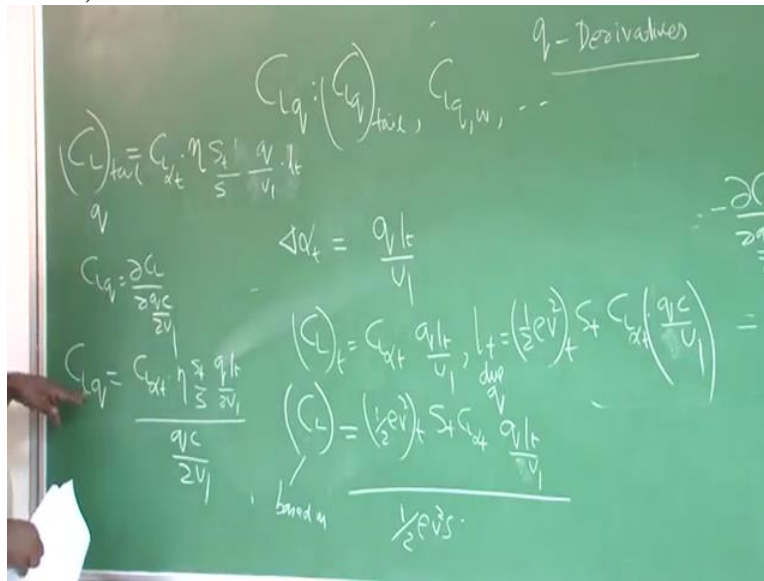 q - Derivatives
C_{Lq} : (C_{Lq})_{tail}, C_{Lq,w}, ..
(C_L)_{tail q} = C_{Lαt} · η S_t/S · q/V_1 · l_t
C_{Lq} = ∂C_L / ∂(qc/2V_1)
Δα_t = q l_t / V_1
- ∂C
(C_L)_t = C_{Lαt} q l_t/V_1, l_t due q = (½ρV²)_t S_t C_{Lαt} (qc/V_1) =
C_{Lq} = C_{Lαt} · η S_t/S q l_t/2V_1 / (qc/2V_1)
(C_L) = (½ρV²)_t S_t C_{Lαt} q l_t/V_1 / ½ρV²S
based on